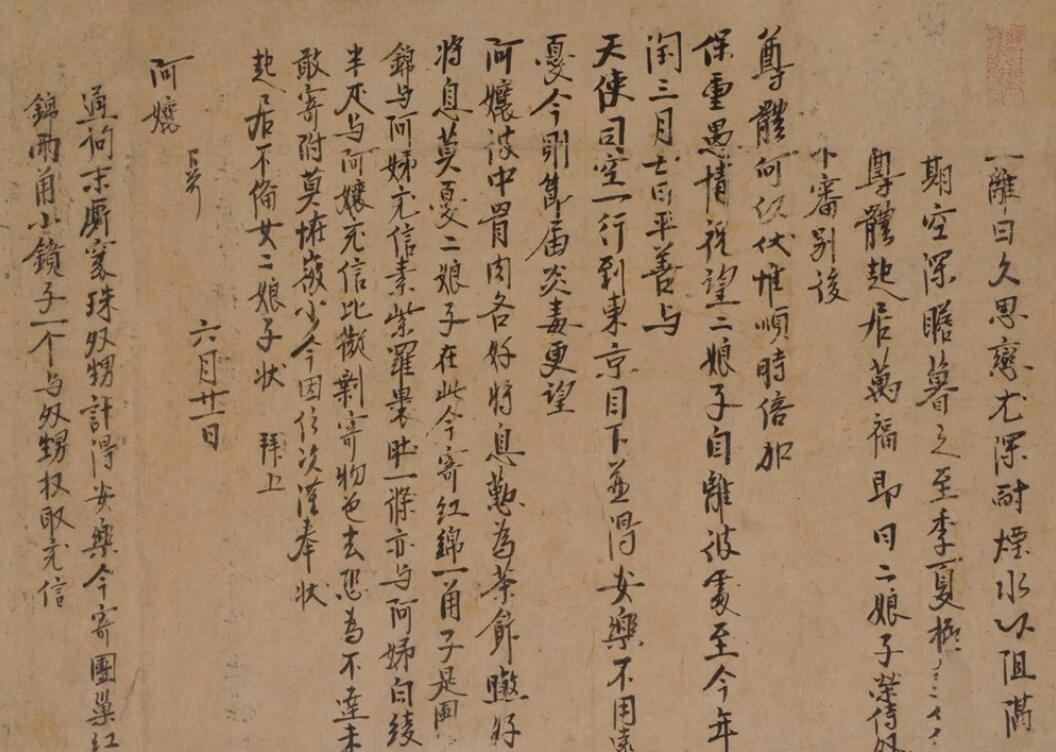 一離日久思戀尤深耐煙水以阻隔
期空深瞻暮之至季夏極
尊體起居萬福即日二娘子榮侍
不審別後
尊體何似伏惟順時倍加
保重愚情祝望二娘子自離彼處至今年
閏三月七日平善与
天使司空一行到東京目下並得安樂不用遠
憂今則節届炎毒更望
阿孃彼中骨肉各好將息勤為茶飰煞好
將息莫憂二娘子在此今寄紅錦一角子是團
錦与阿姊充信素紫羅裹肚一條亦与阿姊白綾
半疋与阿孃充信比擬剩寄物色去恐為不達未
敢寄附莫怪微少今因信次謹奉狀
起居不倫女二娘子狀 拜上
六月廿一日
阿孃
通詢末厮窠珠外甥計得安樂今寄團巢紅
錦兩角小鏡子一个与外甥收取充信